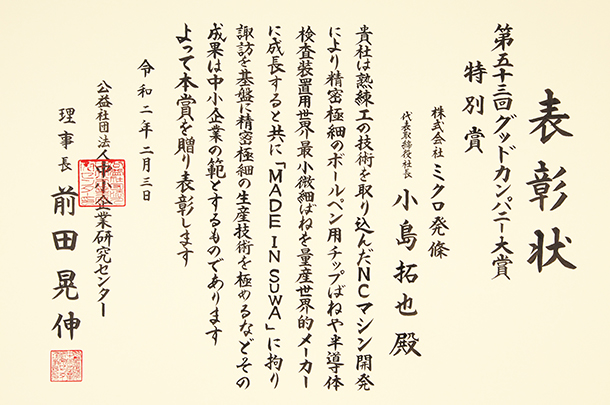 表彰状
第五十三回グッドカンパニー大賞
特別賞
株式会社 ミクロ発條
代表取締役社長 小島拓也殿
貴社は熟練工の技術を取り込んだNCマシン開発
により精密極細のボールペン用チップばねや半導体
検査装置用世界最小微細ばねを量産世界的メーカー
に成長すると共に「MADE IN SUWA」に拘り
諏訪を基盤に精密極細の生産技術を極めるなどその
成果は中小企業の範とするものであります
よって本賞を贈り表彰します
令和二年二月三日
公益社団法人中小企業研究センター
理事長 前田晃伸